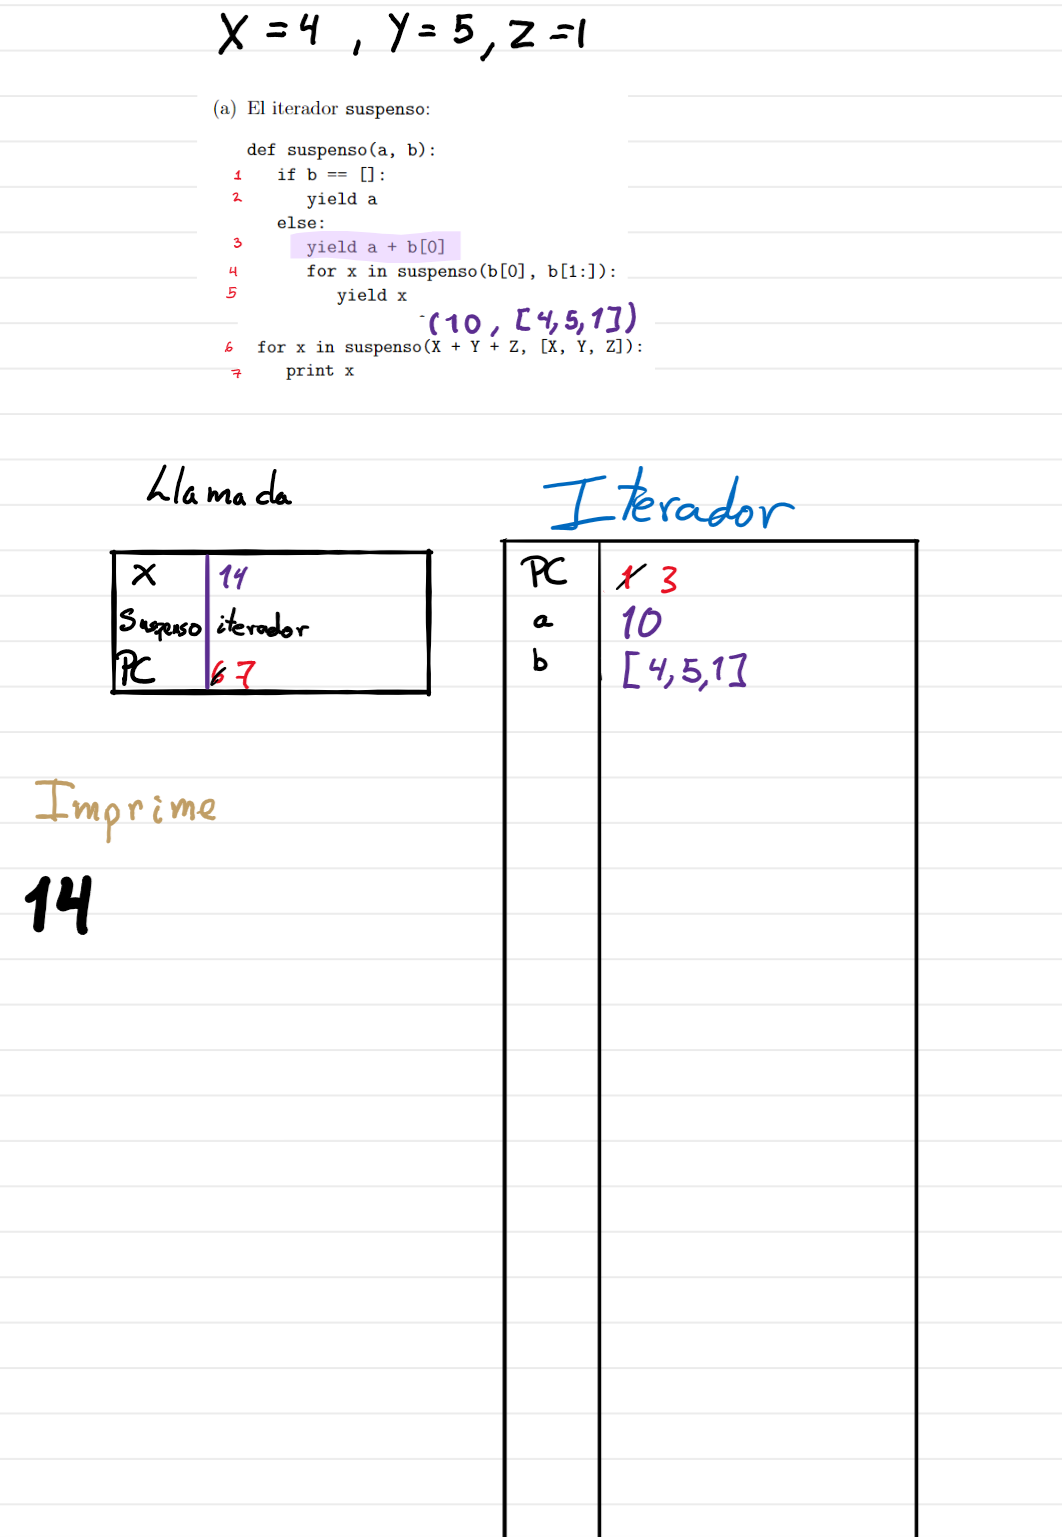 X = 4 , Y = 5, Z = 1
(a) El iterador suspenso:
def suspenso(a, b):
1 if b == []:
2 yield a
else:
3 yield a + b[0]
4 for x in suspenso(b[0], b[1:]):
5 yield x
(10, [4,5,1])
6 for x in suspenso(X + Y + Z, [X, Y, Z]):
7 print x
Llamada
Iterador
X 14
Suspenso iterador
PC 6 7
PC 1 3
a 10
b [4,5,1]
Imprime
14